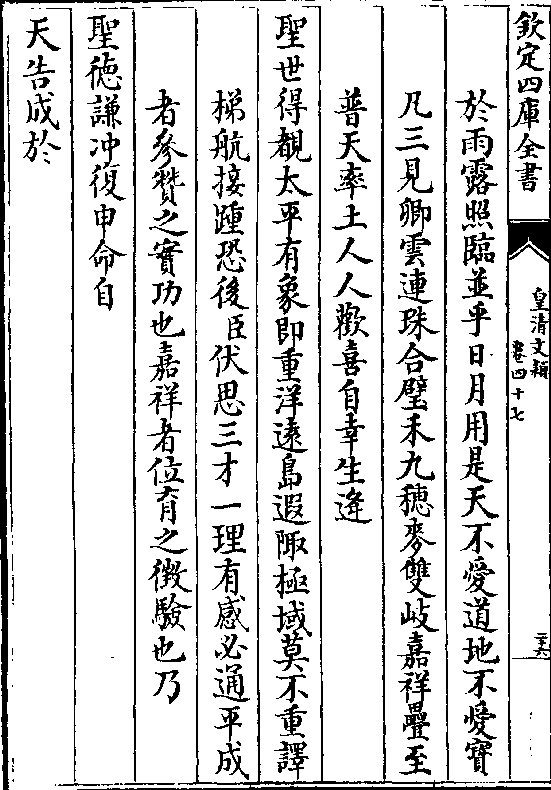 欽定四庫全書
皇清文穎
卷四十七
二六
於雨露照臨並乎日月用是天不愛道地不愛寶
凡三見卿雲連珠合璧禾九穗麥雙岐嘉祥疊至
普天率土人人歡喜自幸生逢
聖世得覩太平有象即重洋遠島遐陬極域莫不重譯
梯航接踵恐後臣伏思三才一理有感必通平成
者參贊之實功也嘉祥者位育之徴驗也乃
聖徳謙冲復申命自
天告成於